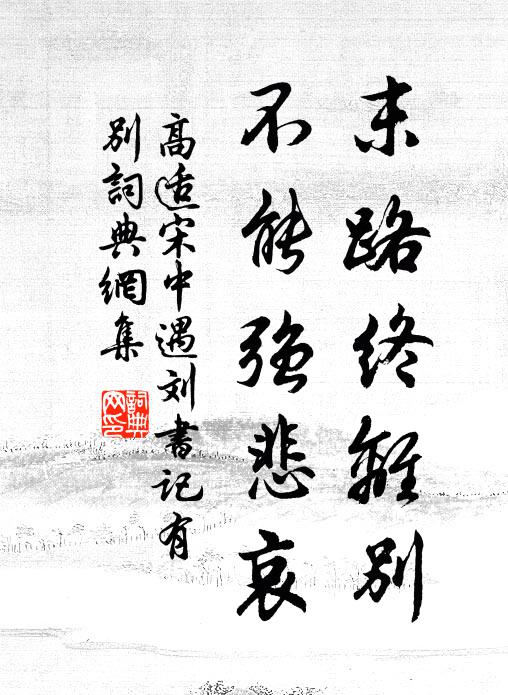 末路终離别
不能强悲哀
高适宋中遇刘書記有
别詞典網集
詞典網印